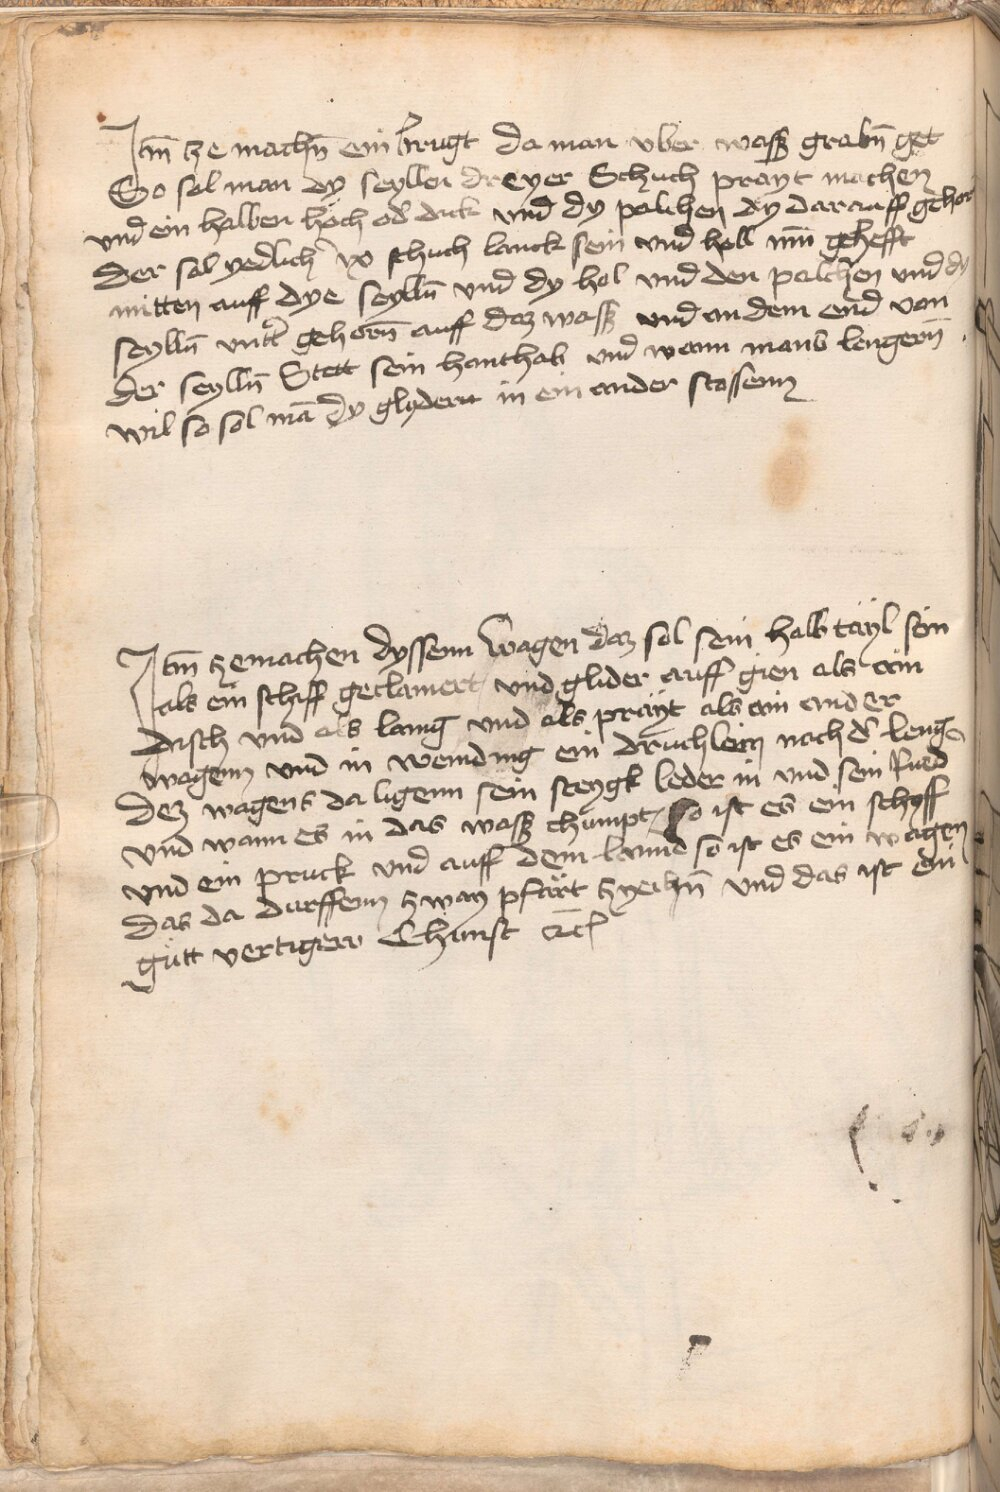 Itm̄ ze machn̄ ein brugt da man vber wass grabn̄ get
So sol man dy seyllen dreyer Schuch prayt machen
vnd ein halben hoch od dick vnd dy palchen dy darauff gehor
Der sol yedlich xv schuch lanck sein vnd holl gehefft
mitten auff dye seylln̄ vnd dy hol vnd den palchen vnd dy
seylln̄ vntt gehorn̄ auff daz wass vnd an dem end von
der seylln̄ Stett sein hanthab vnd wann mans lengern̄
wil so sol mā dy glydern in ein ander stossenn
Itm̄ zemachen dyssenn Wagen daz sol sein halb tayl sein
als ein schiff geclamert vnd glider auff gien als ain
disch vnd als lanng vnd als prayt als ain ander
wagenn vnd in wending ein druchlein nach d leng
dez wagens da ligenn sein steygk leder in vnd sein Rued
vnd wann es in das wass chumpt so ist es ein schyff
vnd ein pruck vnd auff dem lannd so ist es ein wagen
das da durffenn zway pfärt zyechn̄ vnd das ist ein
gutt vertiger Chunst